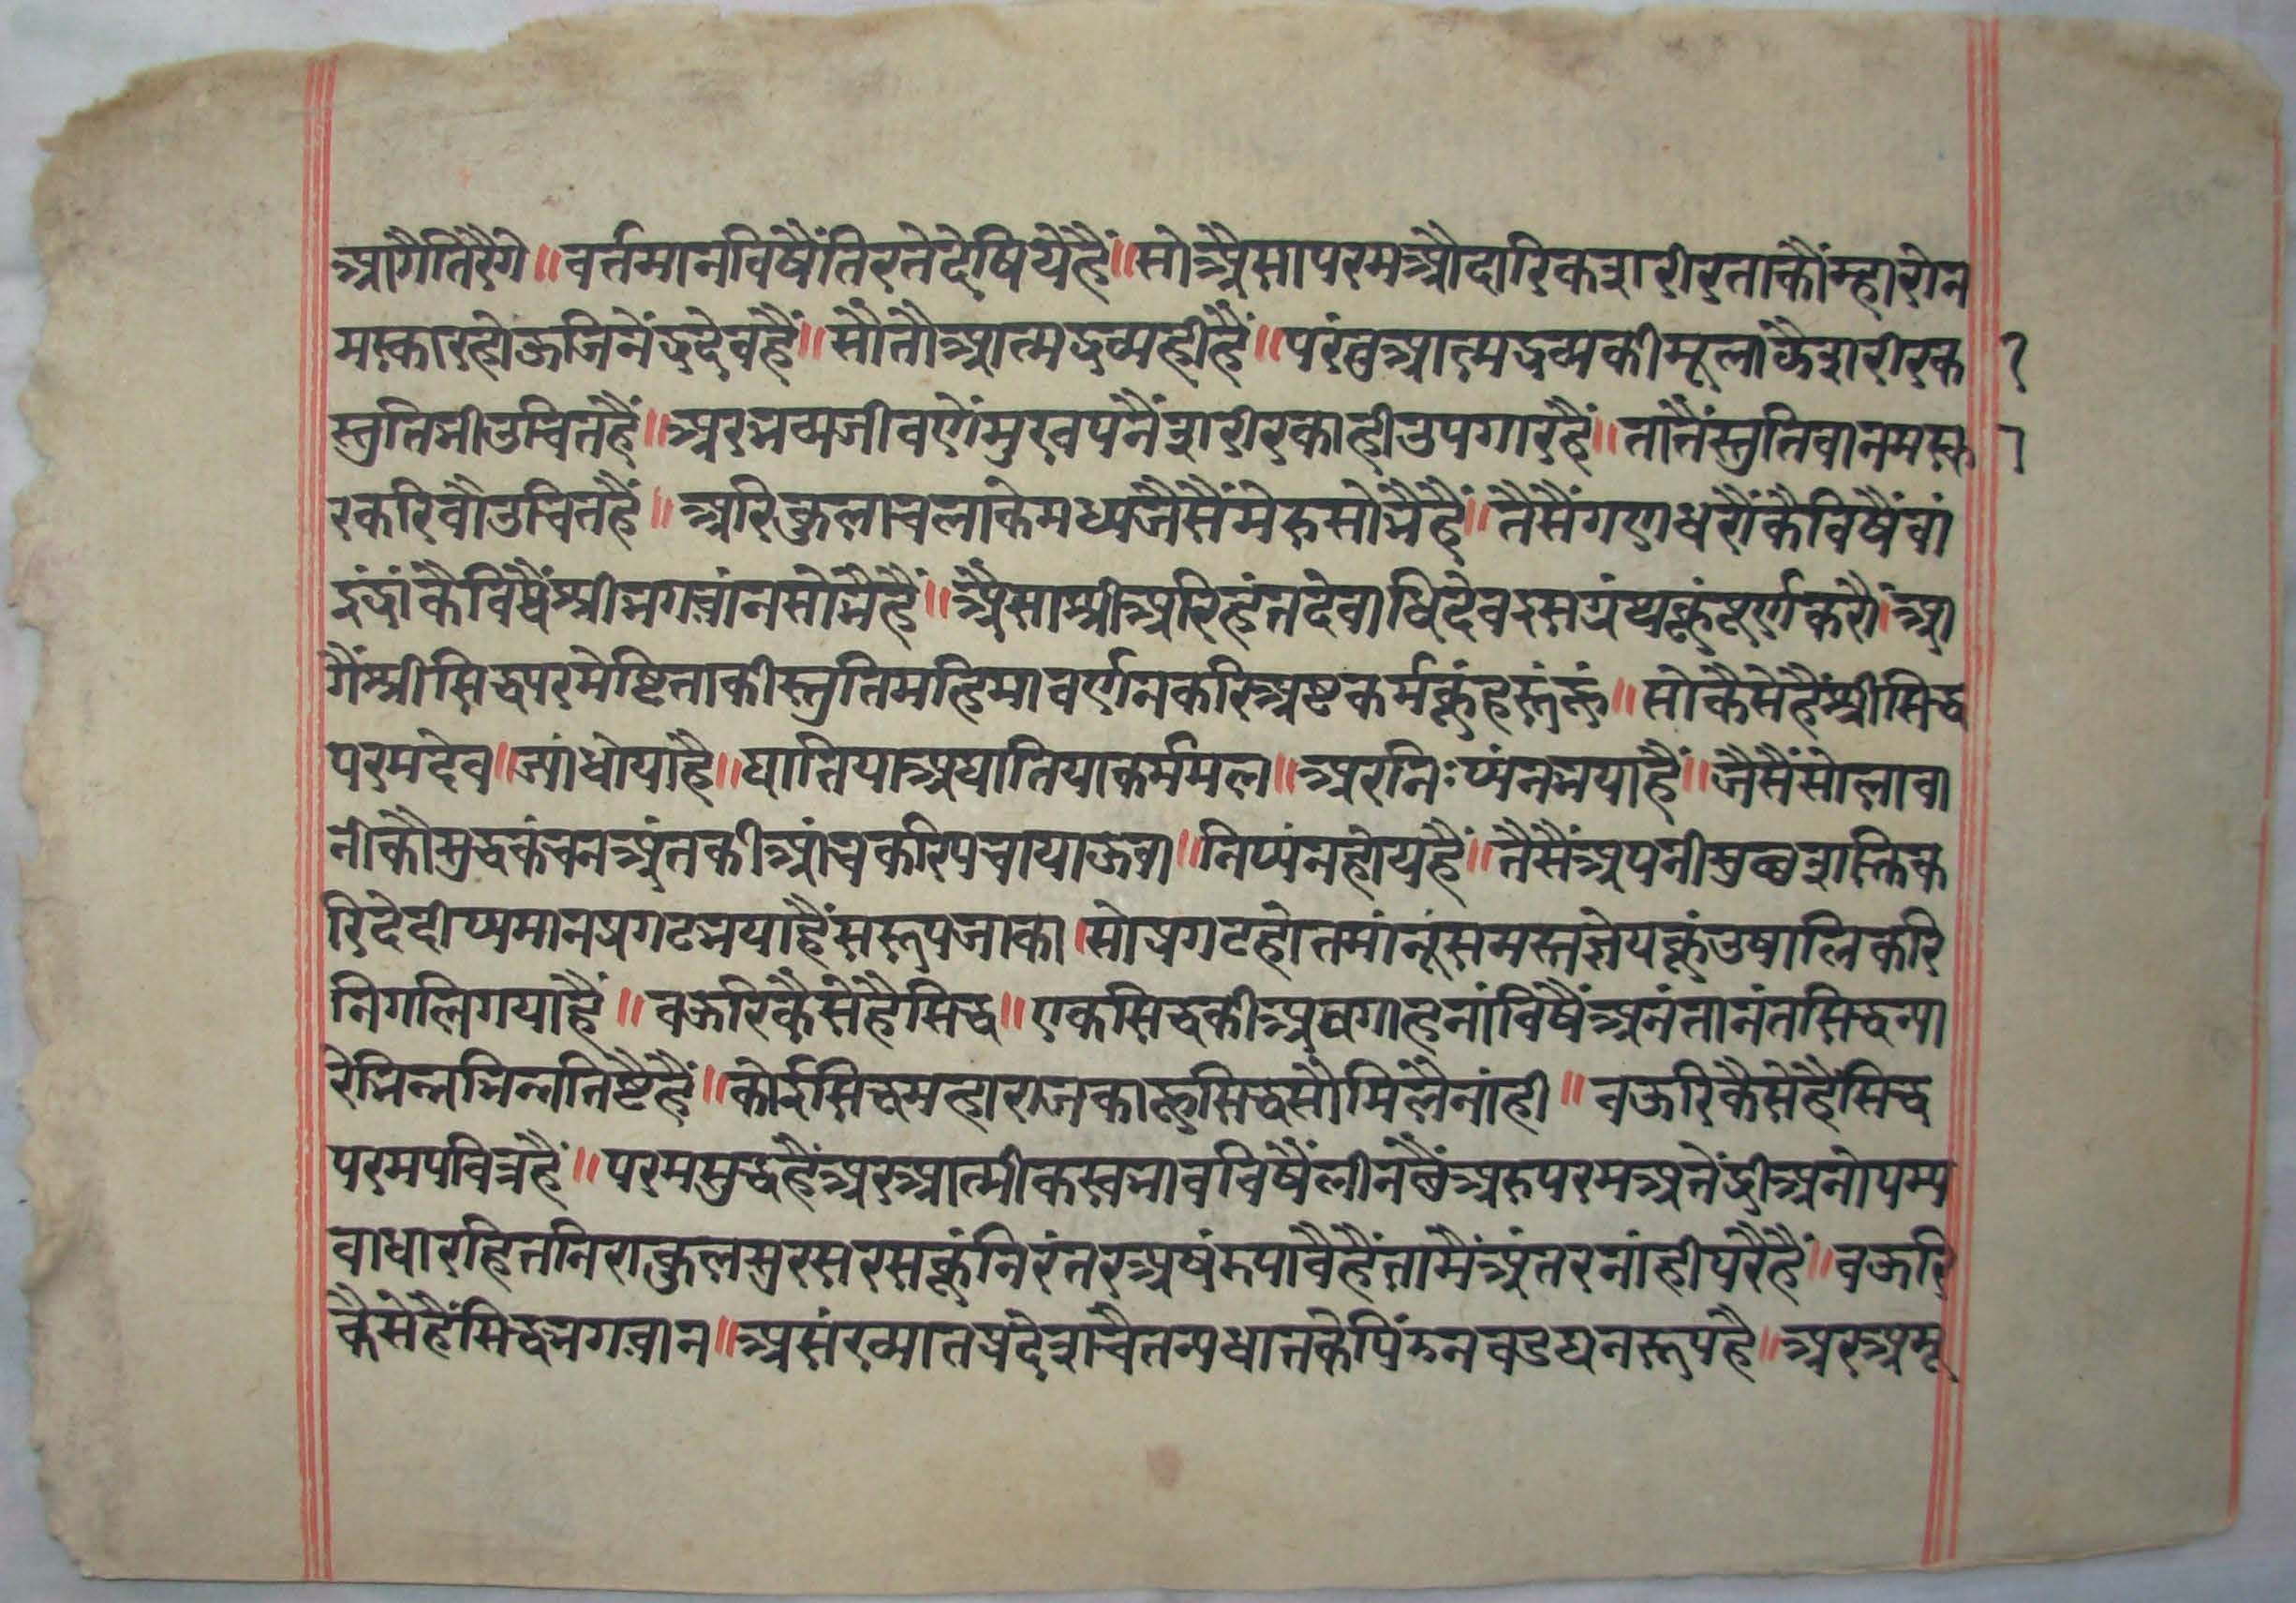 आगैतिरैगे॥वर्तमानविषैंतिरतेदेषियेहैं॥सोअैसापरमऔदारिकशरीरताकौंम्हारोन
मस्कारहोऊजिनेंद्रदेवहैं॥सौतौआत्मद्रव्यहीहैं॥परंतुआत्मद्रव्यकीमूलांकैशरीरक १
स्तुतिभीउचितहैं॥अरभव्यजीवणेंमुख्यपनैंशरीरकाहीउपगारहैं॥तातैंस्तुतिवानमस्का
रकरिवौउचितहैं॥अरिकुलाचलाकेमध्यजैसैंमेरुसोभैहैं॥तैसैंगणधरौंकैविषैंवां
इंद्रांकैविषैंश्रीभगवांनसोभैहैं॥अैसाश्रीअरिहंतदेवाधिदेवइसग्रंथकूंपूर्णकरौ।आ
गैंश्रीसिद्धपरमेष्टिताकीस्तुतिमहिमावर्णनकरिअष्टकर्मकूंहस्तूंहूं॥सोकैसेहैंश्रीसिद्ध
परमदेव॥ज्यांधोयाहै॥घातियाअघातियाकर्ममल॥अरनिःप्पंनभयाहैं॥जैसैंसोलावा
नीकौसुद्धकंचनअंतकीआंचकरिपचायाऊवा॥निप्पंनहोयहैं॥तैसैंअपनीसुछशक्तिक
रिदेदीप्यमानप्रगटभयाहैंसरूपजाका।सोप्रगटहोतमांनूंसमस्तज्ञेयकूंउषालिकरि
निगलिगयाहैं॥बऊरिकैसेंहैसिद्ध॥एकसिद्धकीअवगाहनांविषैंअनंतानंतसिद्धन्या
रेभिन्नभिन्नतिष्टैहैं॥कोईसिद्धमहाराजकाहूसिद्धसौमिलैनांही॥बऊरिकैसेहैंसिद्ध
परमपवित्रहैं॥परमसुद्धहैंअरआत्मीकस्वभावविषैंलीनछैंअरुपरमअतेंद्रीअनोपम्य
बाधारहितनिराकुलसुरसरसकूंनिरंतरअषंडपावैहैंतामैंअंतरनांहीपरैहैं॥बऊरि
कैसेहैंसिद्धभगवान॥असंख्यातप्रदेशचैतन्यधातकेपिंडनवडघनरूपहै॥अरअमू